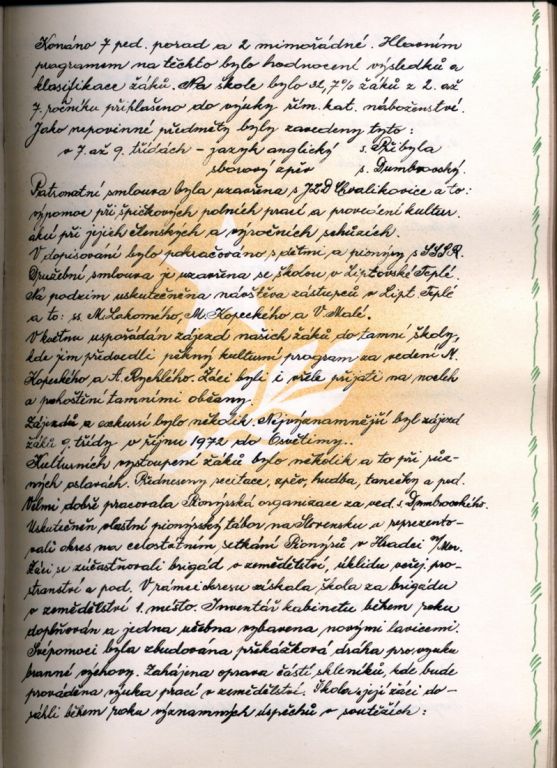 Konáno 7 ped. porad a 2 mimořádné. Hlavním
programem na těchto bylo hodnocení výsledků a
klasifikace žáků. Na škole bylo 32,7% žáků z 2. až
7. ročníku přihlášeno do výuky řím. kat. náboženství.
Jako nepovinné předměty byly zavedeny tyto:
v 7. až 9. třídách – jazyk anglický s. Přibyla
sborový zpěv s. Dumbrovský.
Patronátní smlouva byla uzavřena s JZD Chvalíkovice a to:
výpomoc při špičkových polních prací a provádění kultur.
akcí při jejich členských a výročních schůzích.
V dopisování bylo pokračováno s dětmi a pionýry s SSSR.
Družební smlouva je uzavřena se školou v Liptovské Teplé.
Na podzim uskutečněna návštěva zástupců v Lipt. Teplé
a to: ss. M. Lakomého, M. Kopeckého a V. Malé.
V květnu uspořádán zájezd našich žáků do tamní školy,
kde jim předvedli pěkný kulturní program za vedení M.
Kopeckého a A. Rychlého. Žáci byli i vřele přijati na nocleh
a pohoštění tamními občany.
Zájezdů a exkursí bylo několik. Nejvýznamnější byl zájezd
žáků 9. třídy v říjnu 1972 do Osvětimy..
Kulturních vystoupení žáků bylo několik a to při růz-
ných oslavách. Předneseny recitace, zpěv, hudba, tanečky a pod.
Velmi dobře pracovala Pionýrská organizace za ved. s. Dumbrovského.
Uskutečněn vlastní pionýrský tábor na Slovensku a reprezento-
vali okres na celostátním setkání Pionýrů v Hradci n/Mor.
Žáci se zúčastňovali brigád v zemědělství, úklidu veřej. pro-
stranství a pod. V rámci okresu získala škola za brigádu
v zemědělství 1. místo. Inventář kabinetu během roku
doplňován a jedna učebna vybavena novými lavicemi.
Svépomocí byla zbudována překážková dráha pro výuku
branné výchovy. Zahájena oprava části skleníků, kde bude
prováděna výuka prací v zemědělství. Škola a její žáci do-
sáhli během roku významných úspěchů v soutěžích: